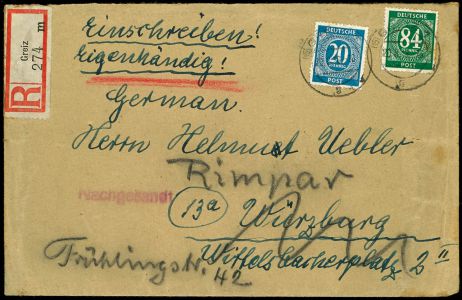 Einschreiben!
Eigenhändig!
German.
Herrn Helmut Uebler
Rimpar
Nachgesandt
13a Würzburg
Wittelsbacherplatz 2 II
Frühlingstr. 42
R
Greiz
274
m
DEUTSCHE
20
PFENNIG
POST
DEUTSCHE
84
PFENNIG
POST